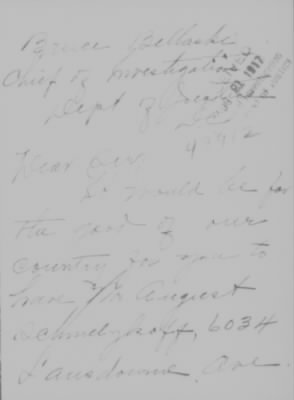 Bruce Bellaski
Chief of Investigation
Dept of
Dear Sir,
It would be for
the good of our
country for you to
have Mr August
6034
Lansdowne Ave
1917